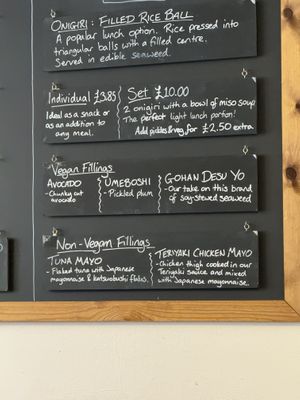 ONIGIRI: FILLED RICE BALL
A popular lunch option. Rice pressed into
triangular balls with a filled centre.
Served in edible seaweed.
Individual £3.85
Ideal as a snack or
as an addition to
any meal.
Set £10.00
2 onigiri with a bowl of miso soup
The perfect light lunch portion!
Add pickles & veg, for £2.50 extra
Vegan Fillings
AVOCADO
- Chunky cut
avocado
UMEBOSHI
- Pickled plum
GOHAN DESU YO
- Our take on this brand
of soy-stewed seaweed
Non-Vegan Fillings
TUNA MAYO
- Flaked tuna with Japanese
mayonnaise & katsuobushi flakes.
TERIYAKI CHICKEN MAYO
- Chicken thigh cooked in our
Teriyaki sauce and mixed
with Japanese mayonnaise.